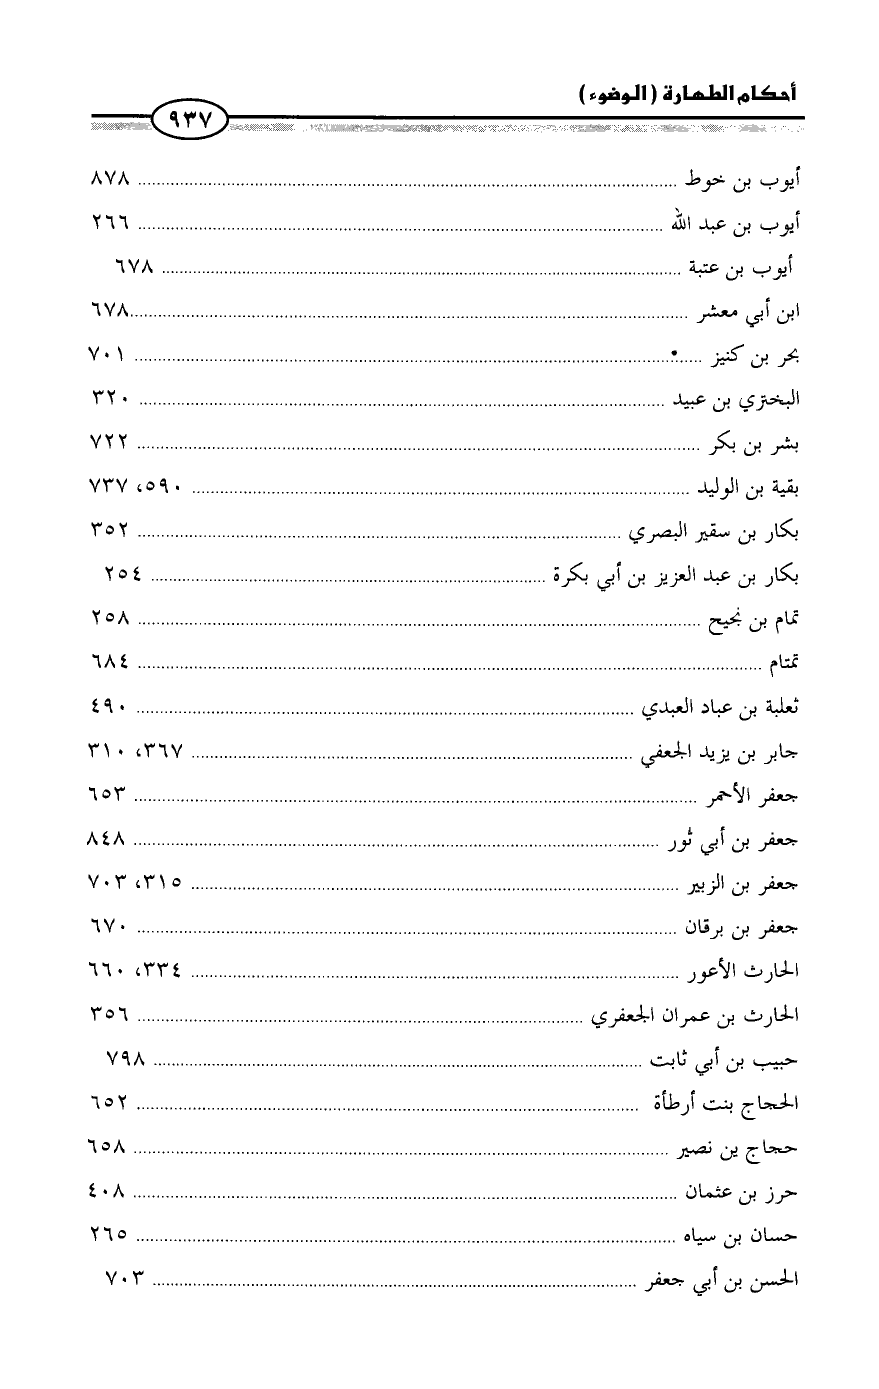 أحكام الطهارة ( الوضوء )
٩٣٧
أيوب بن خوط ........ ٨٧٨
أيوب بن عبد الله ........ ٢٦٦
أيوب بن عتبة ........ ٦٧٨
ابن أبي معشر ........ ٦٧٨
بحر بن كنيز ........ ٧٠١
البختري بن عبيد ........ ٣٢٠
بشر بن بكر ........ ٧٢٢
بقية بن الوليد ........ ٥٩٠، ٧٣٧
بكار بن سقير البصري ........ ٣٥٢
بكار بن عبد العزيز بن أبي بكرة ........ ٢٥٤
تمام بن نجيح ........ ٢٥٨
تمتام ........ ٦٨٤
ثعلبة بن عباد العبدي ........ ٤٩٠
جابر بن يزيد الجعفي ........ ٣٦٧، ٣١٠
جعفر الأحمر ........ ٦٥٣
جعفر بن أبي ثور ........ ٨٤٨
جعفر بن الزبير ........ ٣١٥، ٧٠٣
جعفر بن برقان ........ ٦٧٠
الحارث الأعور ........ ٣٣٤، ٦٦٠
الحارث بن عمران الجعفري ........ ٣٥٦
حبيب بن أبي ثابت ........ ٧٩٨
الحجاج بنت أرطأة ........ ٦٥٢
حجاج ين نصير ........ ٦٥٨
حرز بن عثمان ........ ٤٠٨
حسان بن سياه ........ ٢٦٥
الحسن بن أبي جعفر ........ ٧٠٣